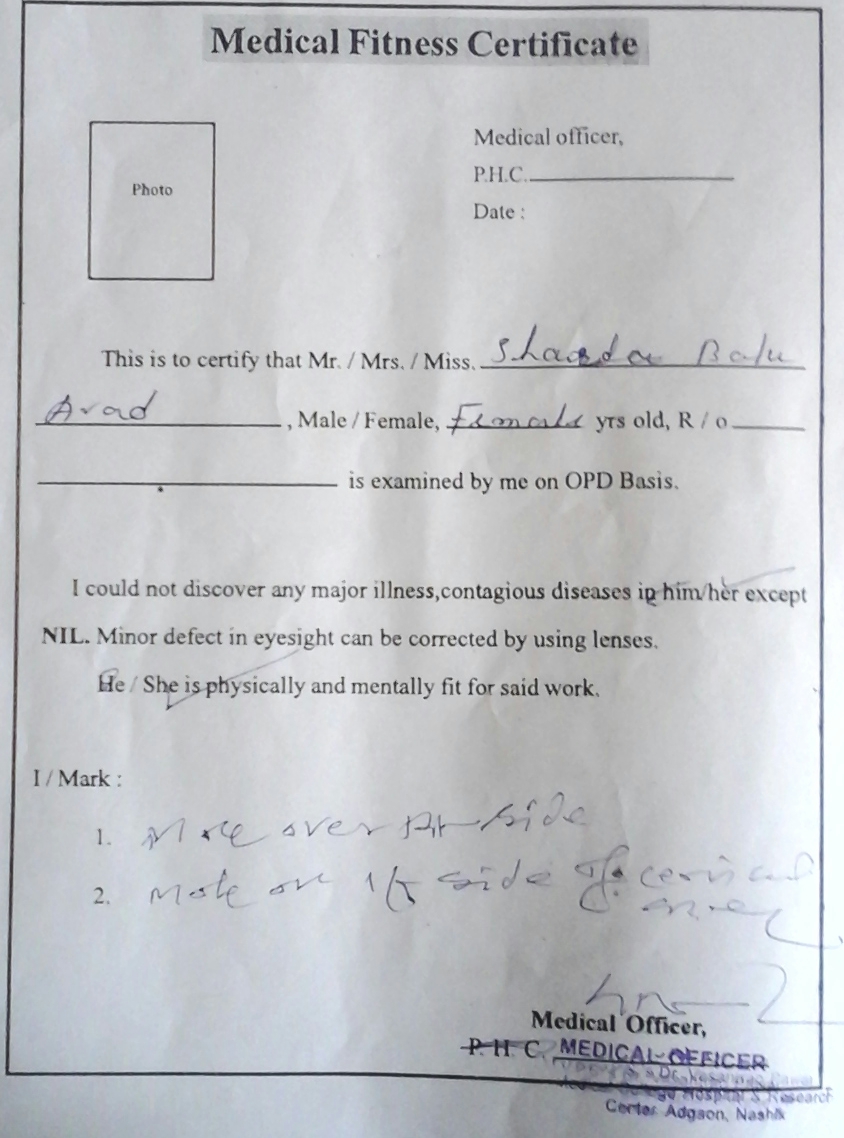 Medical Fitness Certificate
Photo
Medical officer,
P.H.C.
Date :
This is to certify that Mr. / Mrs. / Miss. Sharda Balu
Avad , Male / Female, Female yrs old, R / o
is examined by me on OPD Basis.
I could not discover any major illness,contagious diseases in him/her except
NIL. Minor defect in eyesight can be corrected by using lenses.
He / She is physically and mentally fit for said work.
I / Mark :
1. Mole over side
2. Mole on side of cervical
Medical Officer,
P. H. C. MEDICAL OFFICER
Hospital & Research
Center Adgaon, Nashik